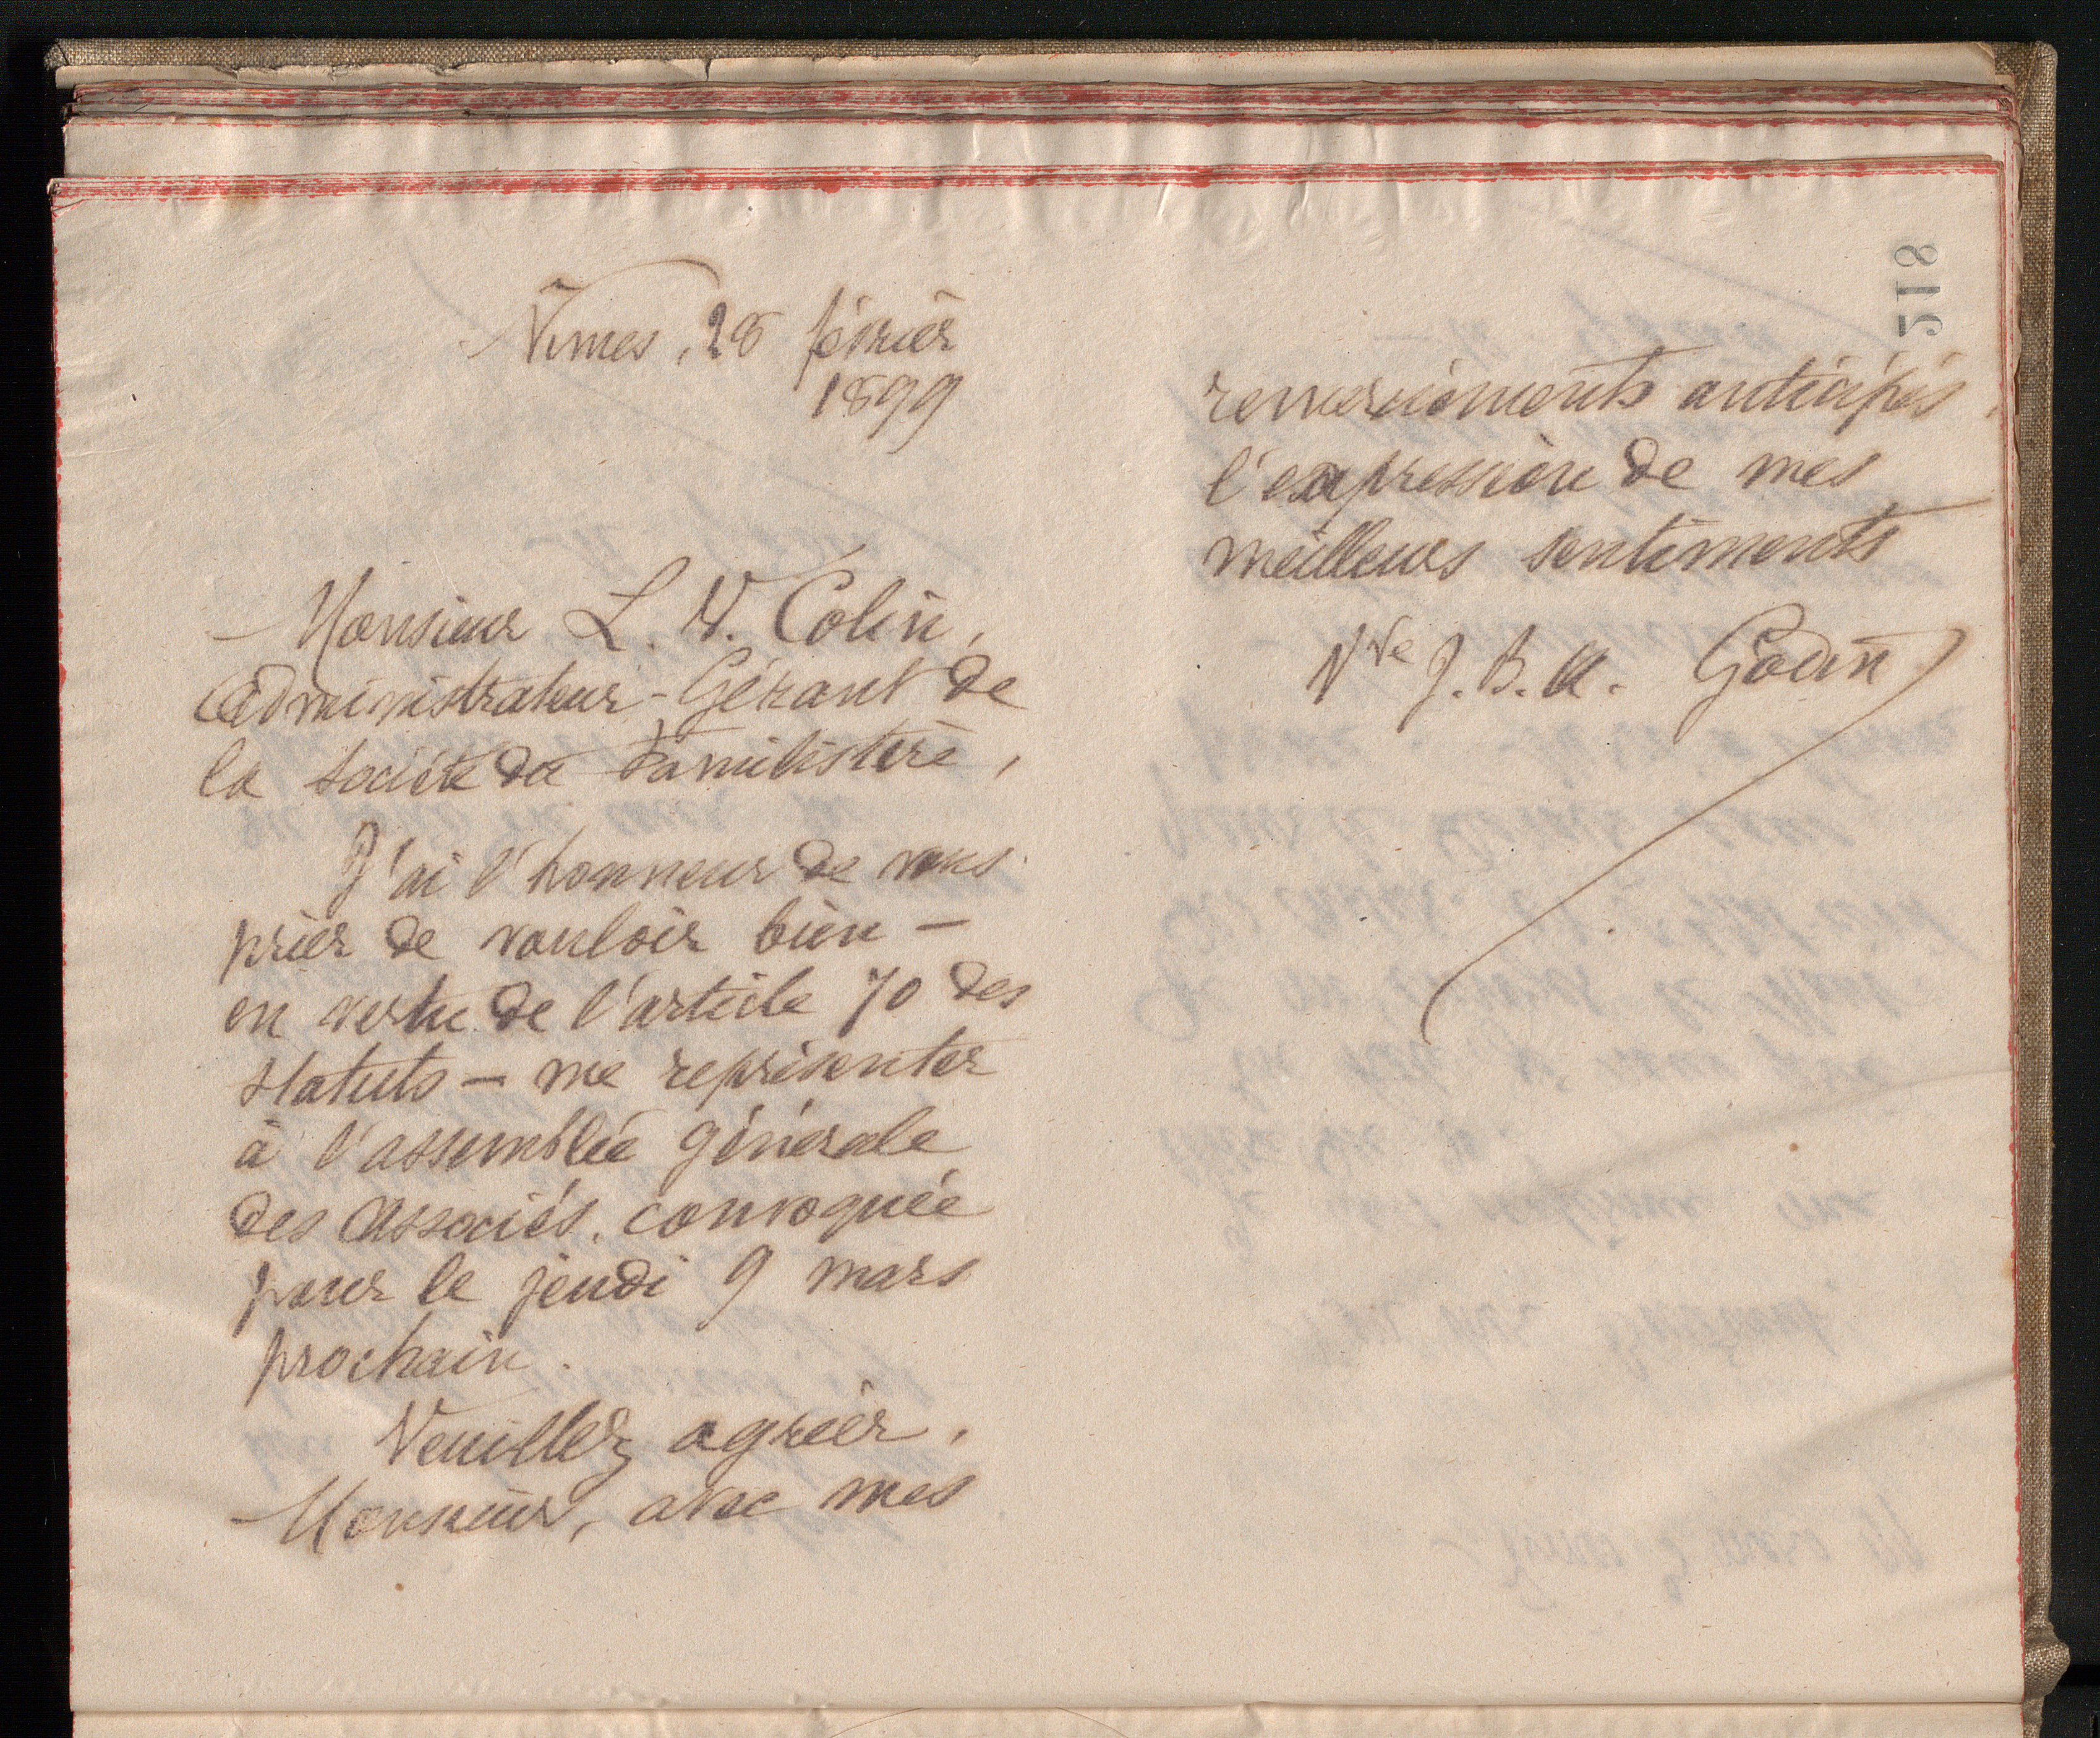 Nîmes, 28 février
1899
Monsieur L. V. Colin,
Administrateur-Gérant de
la Société du Familistère,
J'ai l'honneur de vous
prier de vouloir bien —
en vertu de l'article 70 des
statuts — me représenter
à l'assemblée générale
des Associés, convoquée
pour le jeudi 9 mars
prochain.
Veuillez agréer,
Monsieur, avec mes
518
remerciements anticipés,
l'expression de mes
meilleurs sentiments
Vve J. B. A. Godin